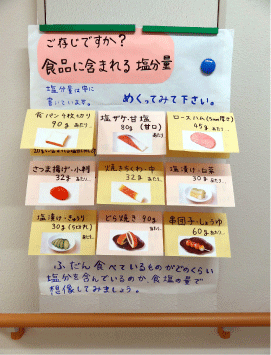 ご存じですか？
食品に含まれる 塩分量
塩分量は中に
書いています。
めくってみて下さい。
食パン4枚切り
90g あたり…
塩ザケ・甘塩
80g (甘口)
ロースハム(5mm厚さ)
45g あたり…
さつま揚げ・小判
32g あたり…
焼きちくわ・中
32g あたり…
塩漬け・白菜
30g あたり…
塩漬け・きゅうり
30g (5切れ)
どら焼き 90g
あたり…
串団子・しょうゆ
60g あたり…
ふだん食べているものがどのくらい
塩分を含んでいるのか 食塩の量で
想像してみましょう。